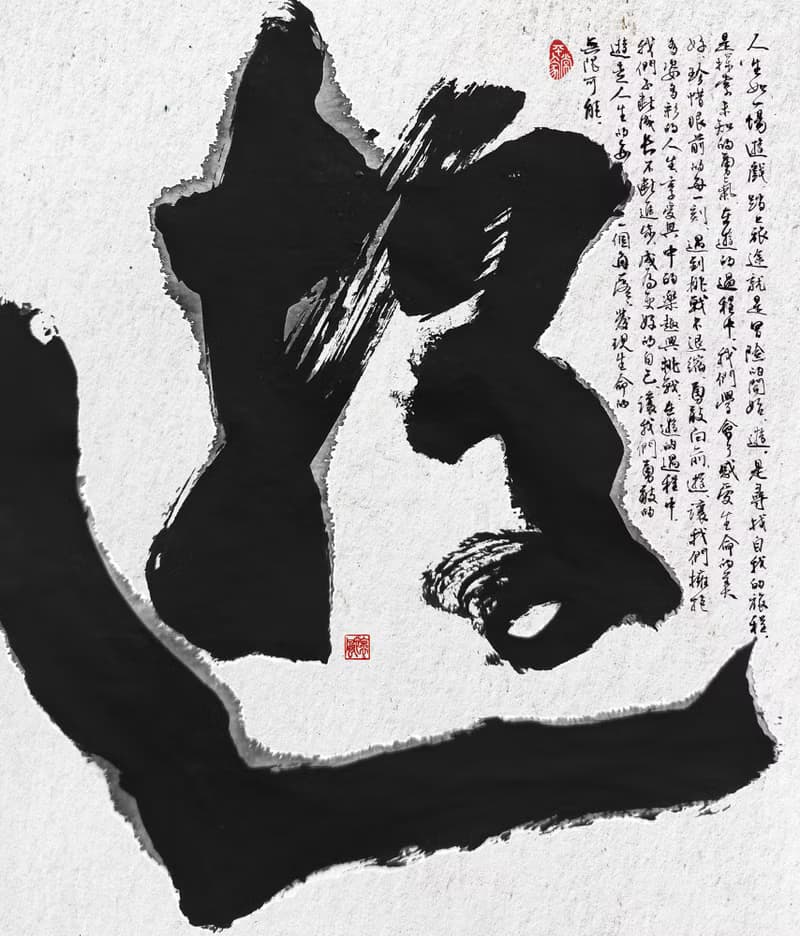 遊
人生如一場遊戲 踏上旅途就是冒險的開始 遊,是尋找自我的旅程,
是探索未知的勇氣 在遊的過程中,我們學會了感受生命的美
好,珍惜眼前的每一刻,遇到挑戰不退縮 勇敢向前 遊,讓我們擁抱
多姿多彩的人生 享受其中的樂趣與挑戰,在遊的過程中,
我們不斷成長 不斷進步,成為更好的自己 讓我們勇敢的
遊走人生的每一個角落,發現生命的
無限可能.